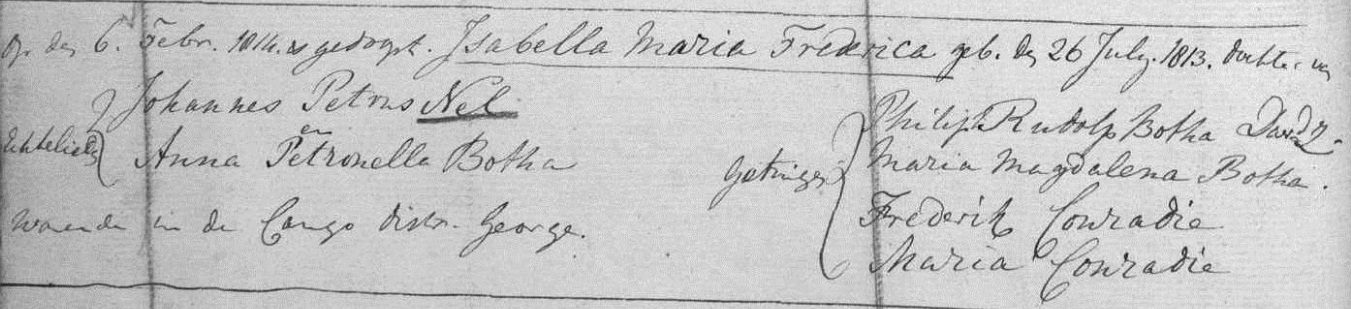 Op den 6. Febr. 1814. is gedoopt. Isabella Maria Frederica geb. den 26 July. 1813. dochter van
Johannes Petrus Nel
Echtelieden en
Anna Petronella Botha
woonende in de Cango distr. George.
Getuigen
Philip Rudolp Botha Davidz.
Maria Magdalena Botha.
Frederik Conradie
Maria Conradie